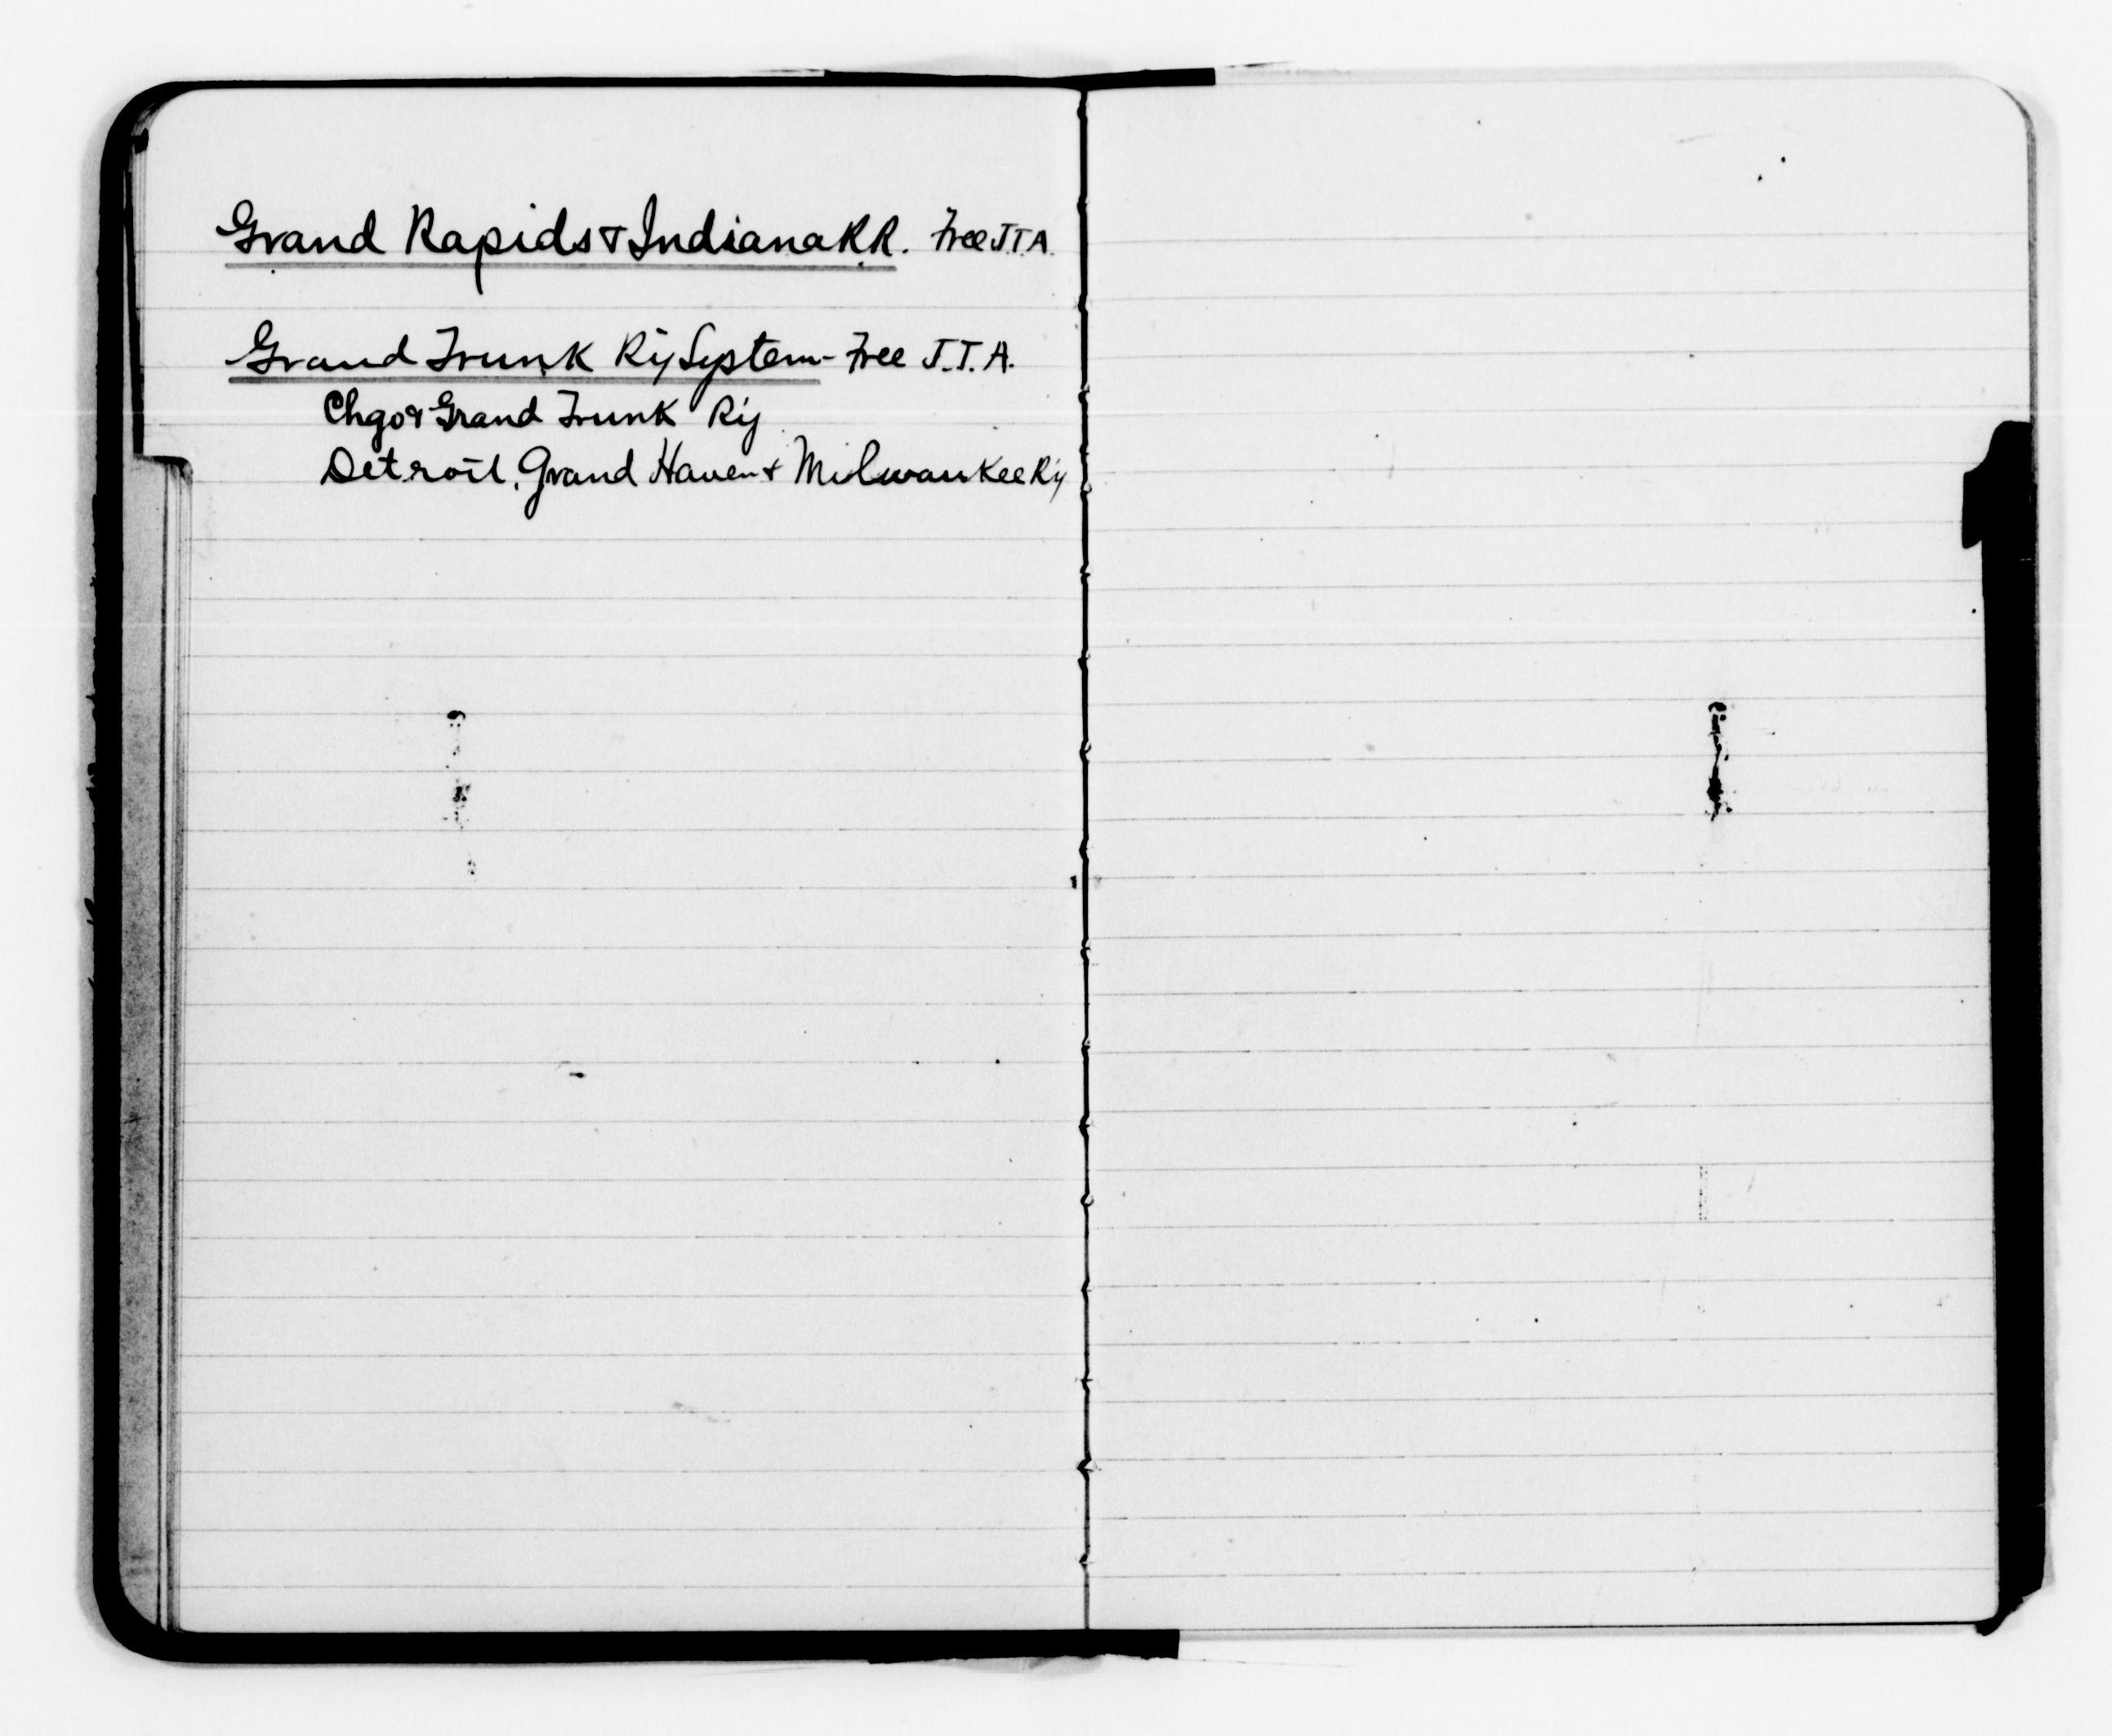 Grand Rapids & Indiana R.R. Free J.T.A.
Grand Trunk Ry System - Free J.T.A.
Chgo & Grand Trunk Ry
Detroit, Grand Haven & Milwaukee Ry